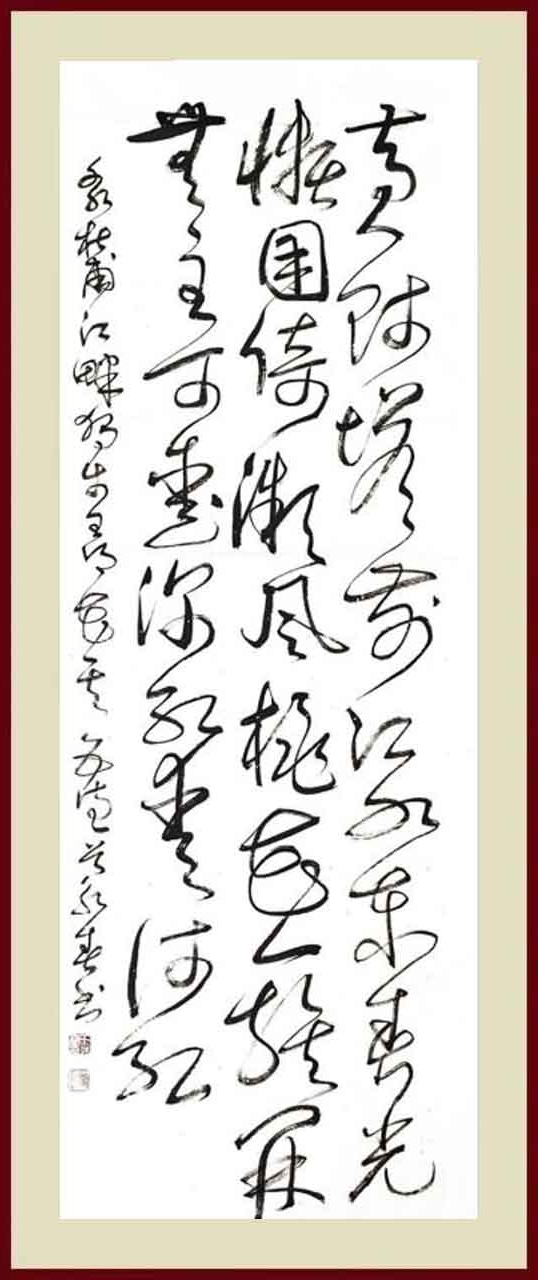 黄師塔前江水东春光
懒困倚微风桃花一簇开
無主可愛深红愛浅红
录杜甫江畔独步尋花
春书